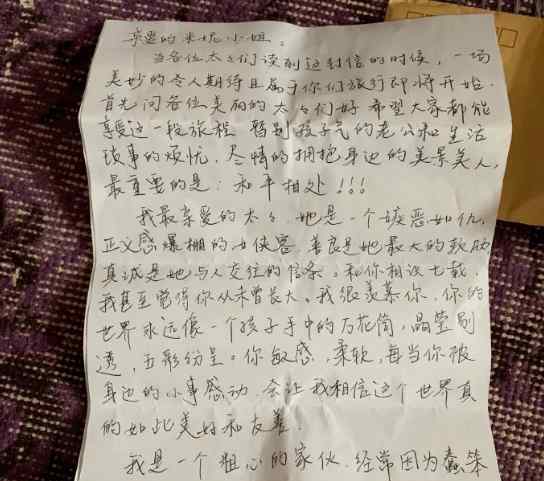 亲爱的米妮小姐。
当各位太太们读到这封信的时候，一场
美妙的令人期待且属于你们旅行即将开始.
首先问各位美丽的太太们好 希望大家都能
享受这一段旅程 暂别孩子气的老公和生活
琐事的烦忧，尽情的拥抱身边的美景美人，
最重要的是：和平相处！！！
我最亲爱的太太 她是一个嫉恶如仇，
正义感爆棚的女侠客 善良是她最大的软肋
真诚是她与人交往的信条，和你相识七载，
我甚至觉得你从未曾长大。我很羡慕你，你的
世界永远像一个孩子手中的万花筒，晶莹剔
透，五彩纷呈。你敏感，柔软，每当你被
身边的小事感动，会让我相信这个世界真
的如此美好和友善.
我是一个粗心的家伙，经常因为蠢笨